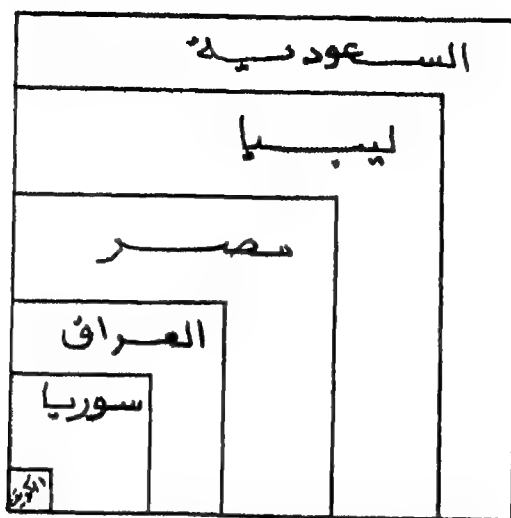 السعودية
ليبيا
مصر
العراق
سوريا
الكويت